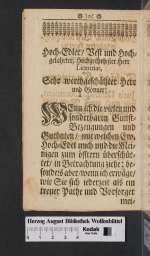 Hoch-Edler/ Vest und Hoch-
gelahrter/ Hochgeehrtester Herr
Licentiat,
Sehr werthgeschätzter Herr
und Gönner:
Wenn ich die vielen und
sonderbaren Gunst-
Bezeugungen und
Gutthaten/ mit welchen Ew.
Hoch-Edl. mich und die Mei-
nigen zum öfftern überschüt-
tet/ in Betrachtung ziehe; be-
sonders aber wenn ich erwäge/
wie Sie sich jederzeit als ein
treuer Pathe und Vorsorger
mei-
Herzog August Bibliothek Wolfenbüttel
Kodak
1 2 3 4 5